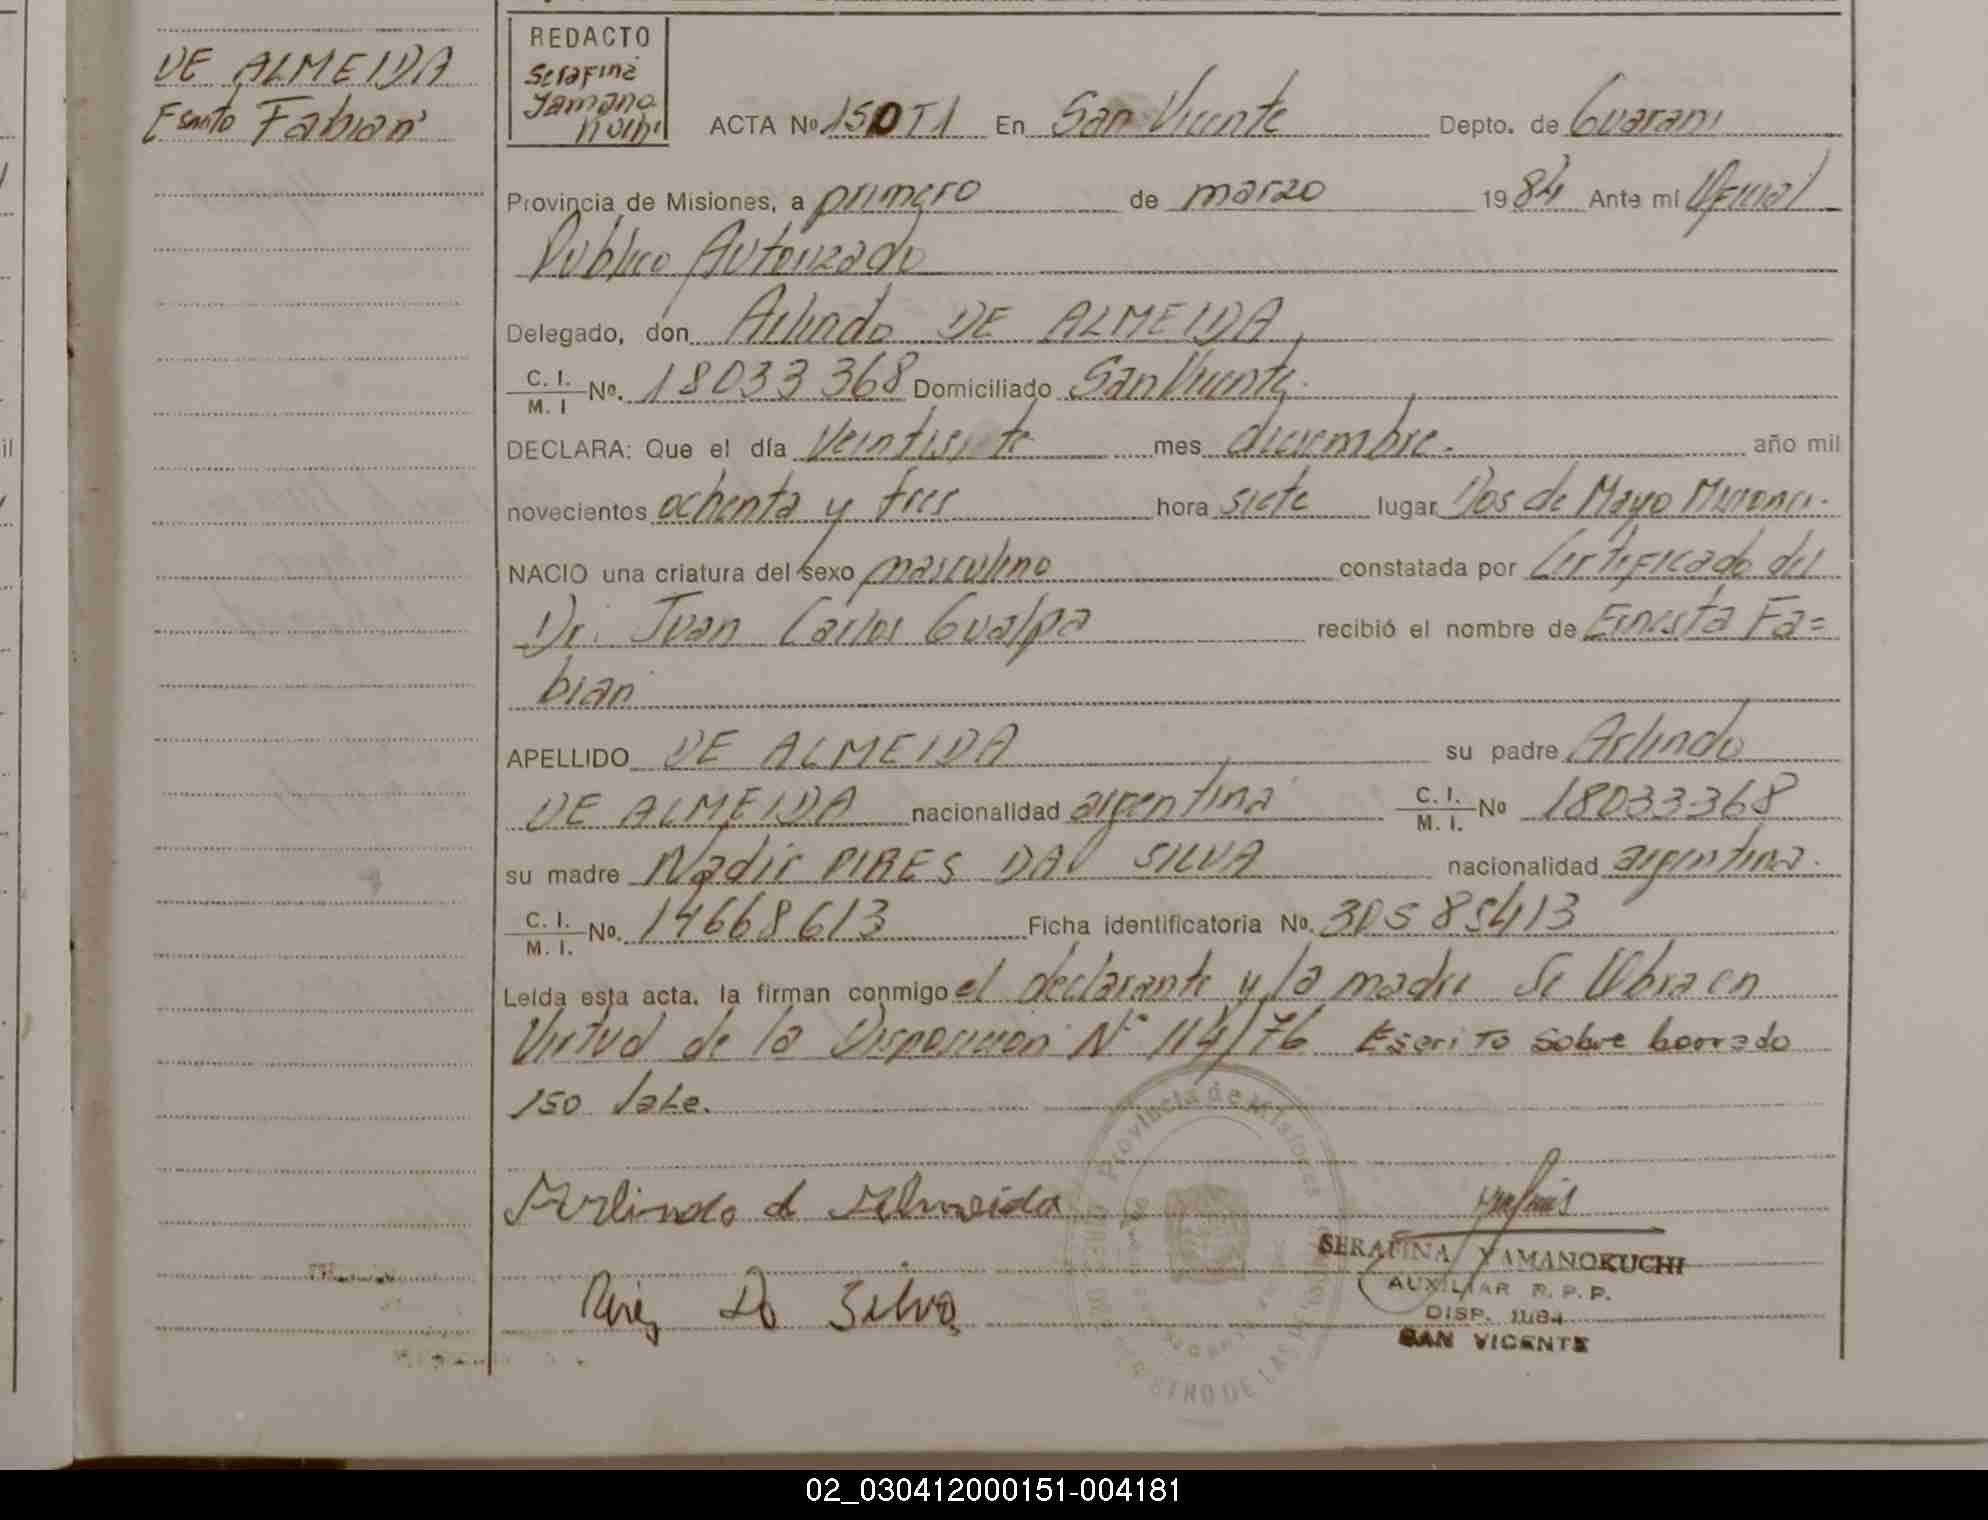 DE ALMEIDA
Fabian
REDACTO
Serafina
Yamano
Kuchi
ACTA Nº 150 T1 En San Vicente Depto. de Guarani
Provincia de Misiones, a primero de marzo 1984 Ante mi Oficial
Público Autorizado
Delegado, don Arlindo DE ALMEIDA,
C. I. / M. I Nº. 18033368 Domiciliado San Vicente.
DECLARA: Que el día Veintisiete mes diciembre. año mil
novecientos ochenta y tres hora siete lugar Dos de Mayo Misiones.
NACIO una criatura del sexo masculino constatada por Certificado del
Dr. Juan Carlos Gualpa recibió el nombre de Ernesto Fa=
bian
APELLIDO DE ALMEIDA su padre Arlindo
DE ALMEIDA nacionalidad argentina C. I. / M. I. Nº 18033368
su madre Nadir PIRES DA SILVA nacionalidad argentina.
C. I. / M. I. Nº. 14668613 Ficha identificatoria No. 30585413
Leída esta acta, la firman conmigo el declarante y la madre Se labra en
Virtud de la Disposicion Nº 114/76 Escrito sobre borrado
150 Vale.
Arlindo d Almeida
Pires Da Silva
Provincia de Misiones
SERAFINA YAMANOKUCHI
AUXILIAR R. P. P.
DISP. 11/84
SAN VICENTE
02_030412000151-004181